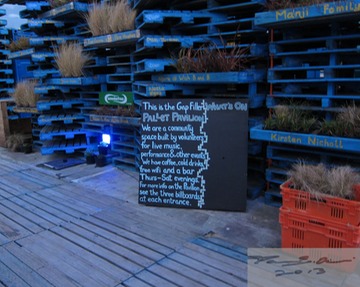 Manji Family
This is the Gap Filler
PALLET PAVILION
We are a community
space built by volunteers
for live music,
performance & other events
We have coffee, cold drinks,
free wifi and a bar
Thurs-Sat evenings
for more info on the Pavilion
see the three billboards
at each entrance.
Kirsten Nicholl
2013